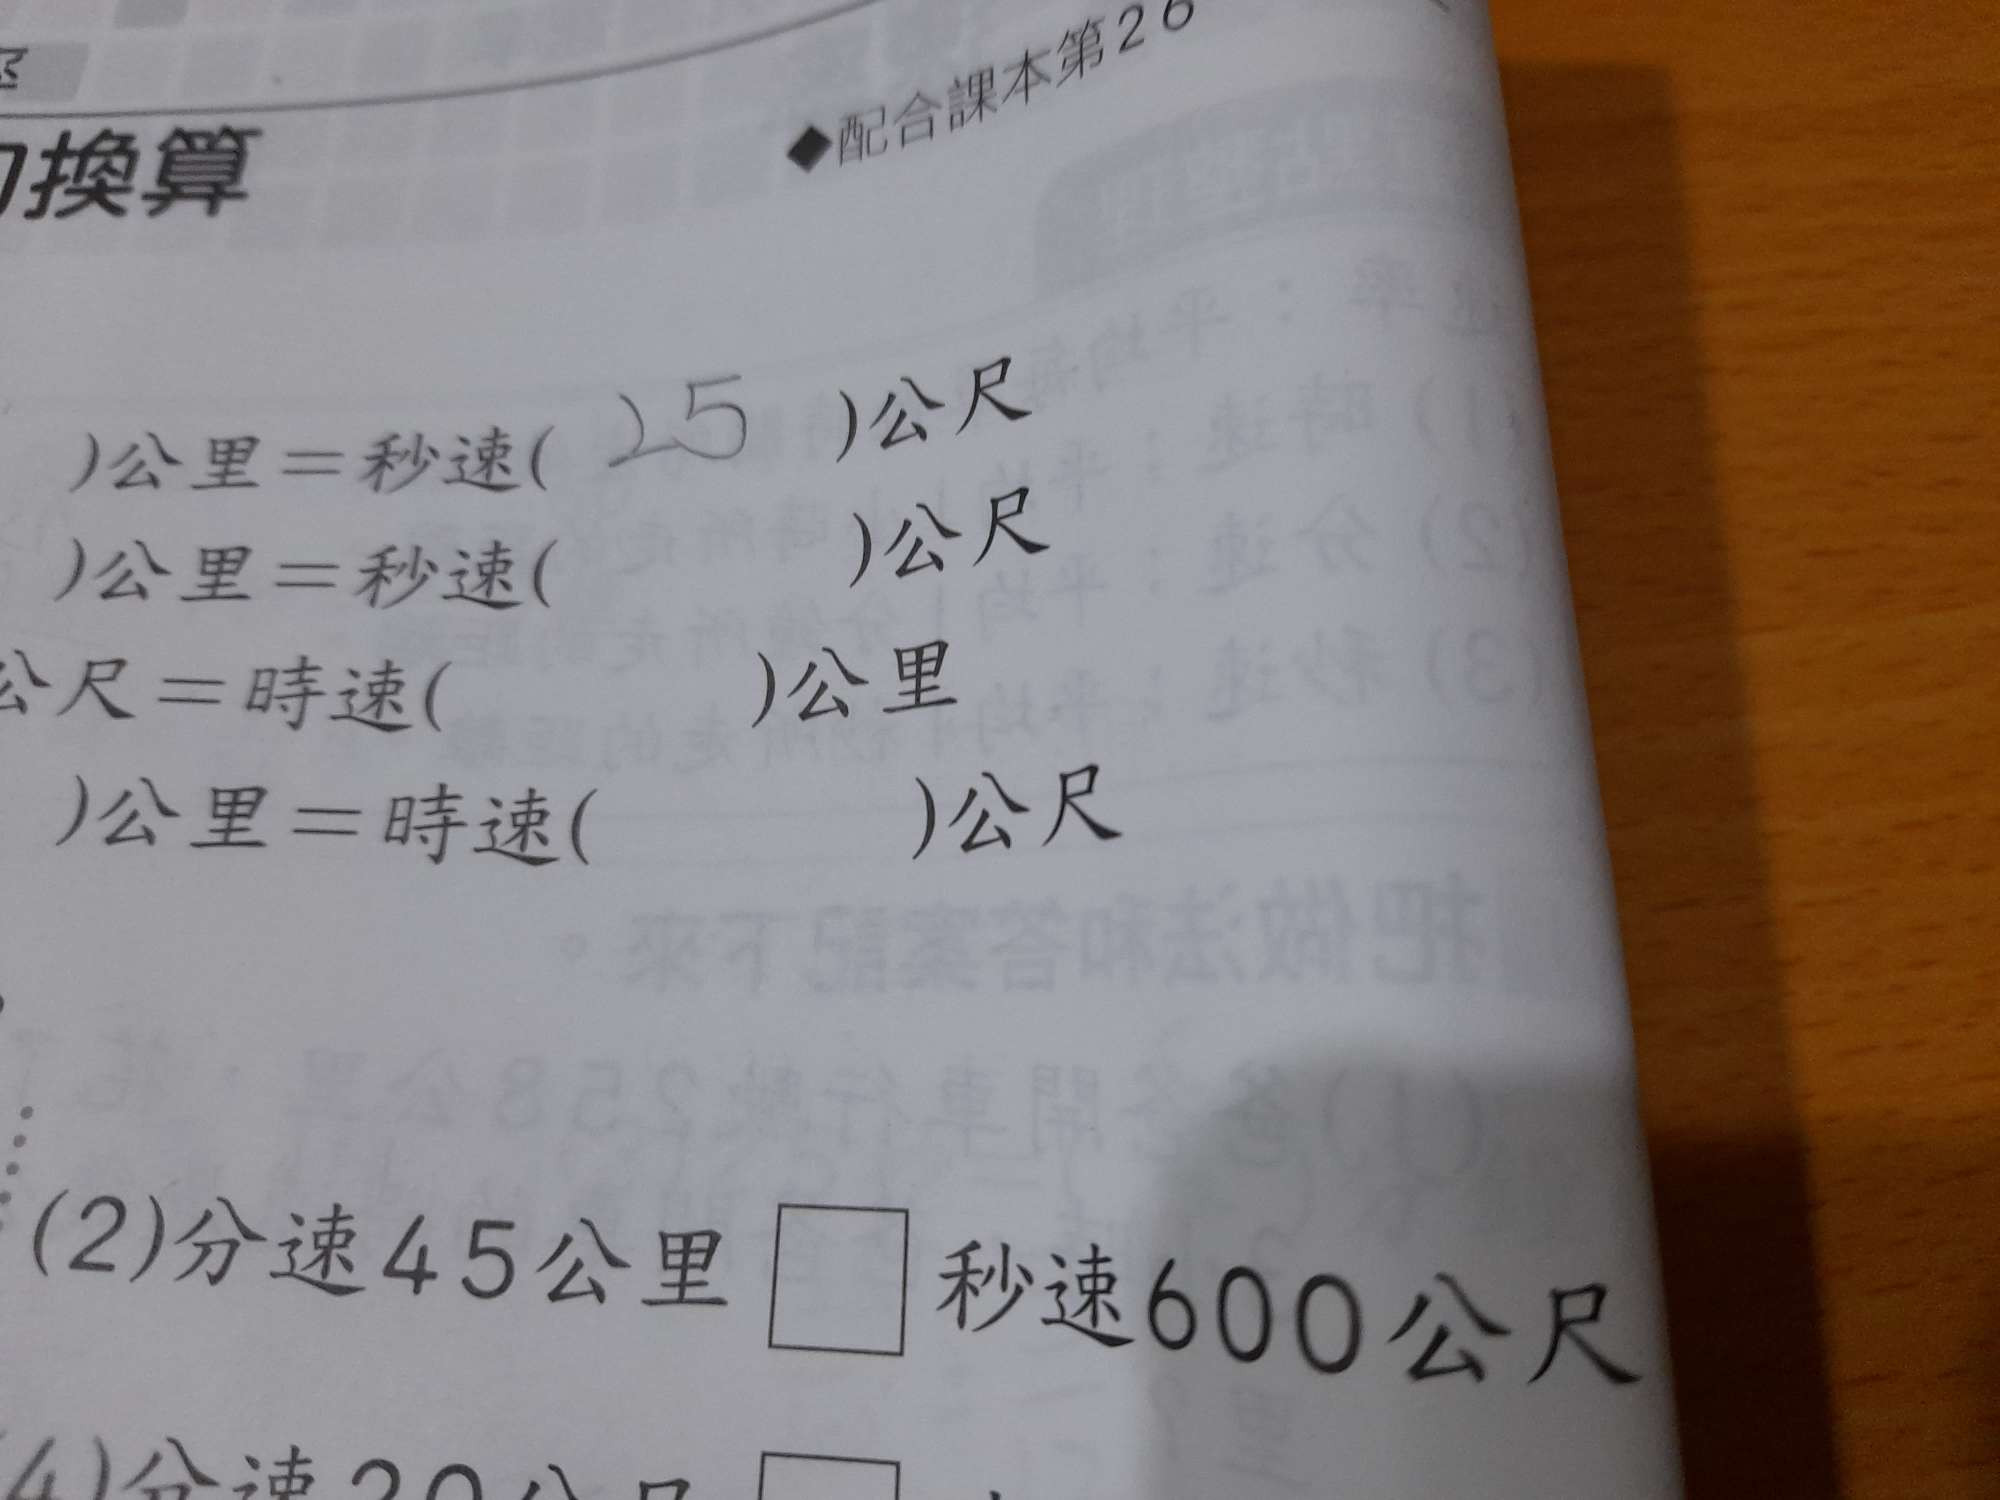 換算
◆配合課本第26
)公里＝秒速( 25 )公尺
)公里＝秒速( )公尺
公尺＝時速( )公里
)公里＝時速( )公尺
(2)分速45公里□秒速600公尺
(4)分速20公尺□